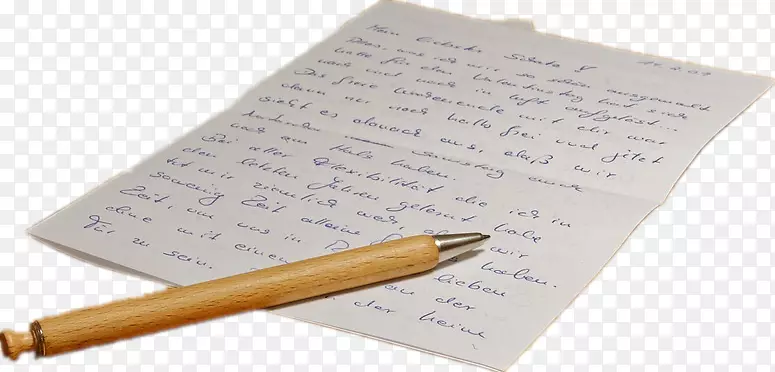 Mein 14.2.09
Dies, was ich mir so schön ausgemalt
hatte für den Valentinstag hat sich
nach und nach in luft aufgelöst...
Das freie Wochenende mit dir war
dann nur noch halb frei und jetzt
sieht es danach aus, daß wir
Samstag auch
noch am Hals haben.
Bei aller Flexibilität die ich in
den letzten Jahren gelernt habe
tut mir ziemlich weh, wir
so wenig Zeit alleine haben.
Zeit, um uns in lieben
ohne mit einem an der
Tür zu sein. der keine